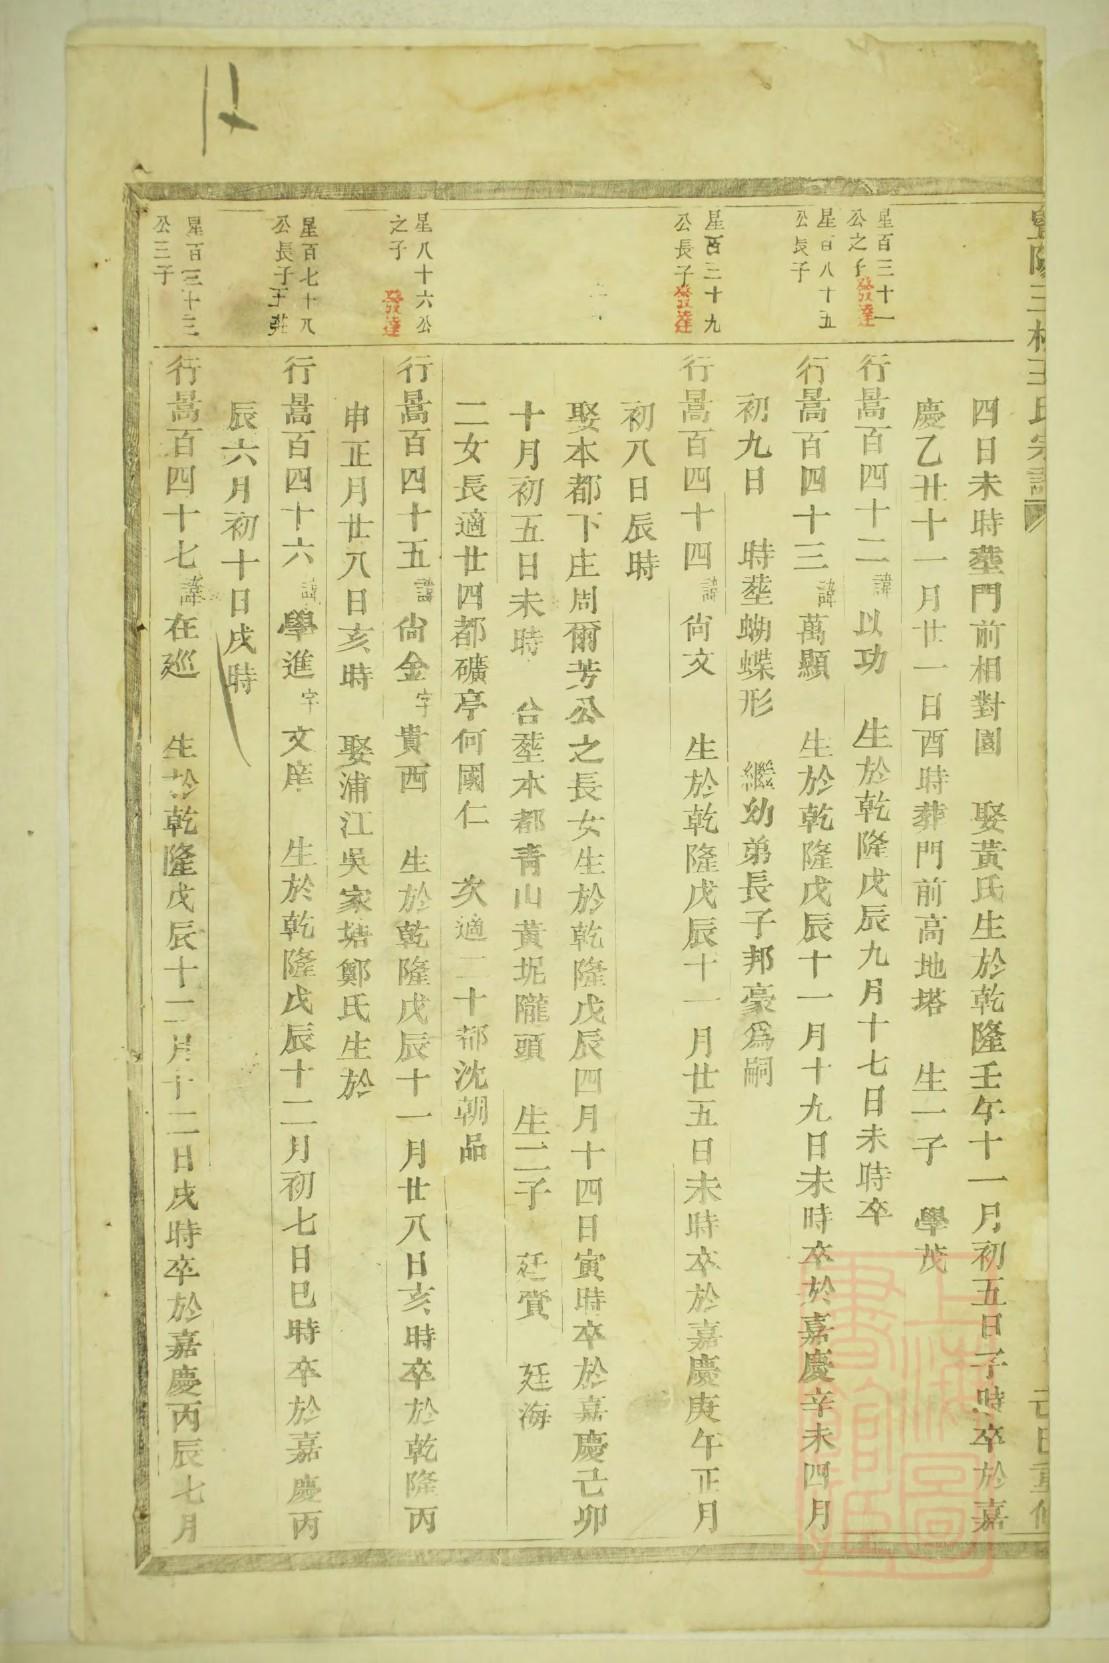 四日未時塟門前相對園 娶黃氏生於乾隆壬午十一月初五日子時卒於嘉
慶乙丑十一月廿一日酉時葬門前高地塔 生一子 學茂
星百三十一
公之子
發達
行暠百四十二諱以功 生於乾隆戊辰九月十七日未時卒
星百八十五
公長子
行暠百四十三諱萬顯 生於乾隆戊辰十一月十九日未時卒於嘉慶辛未四月
初九日 時塟蝴蝶形 繼幼弟長子邦豪爲嗣
星百三十九
公長子
發達
行暠百四十四諱尙文 生於乾隆戊辰十一月廿五日未時卒於嘉慶庚午正月
初八日辰時
娶本都下庄周爾芳公之長女生於乾隆戊辰四月十四日寅時卒於嘉慶己卯
十月初五日未時 合塟本都青山黃坭隴頭 生二子 廷賞 廷海
二女長適廿四都礦亭何國仁 次適二十都沈朝品
星八十六公
之子
發達
行暠百四十五諱尙金字貴西 生於乾隆戊辰十一月廿八日亥時卒於乾隆丙
申正月廿八日亥時 娶浦江吳家塘鄭氏生於
星百七十八
公長子
行暠百四十六諱學進字文 生於乾隆戊辰十二月初七日巳時卒於嘉慶丙
辰六月初十日戌時
星百三十三
公三子
行暠百四十七諱在巡 生於乾隆戊辰十二月十二日戌時卒於嘉慶丙辰七月
上海圖
書館藏